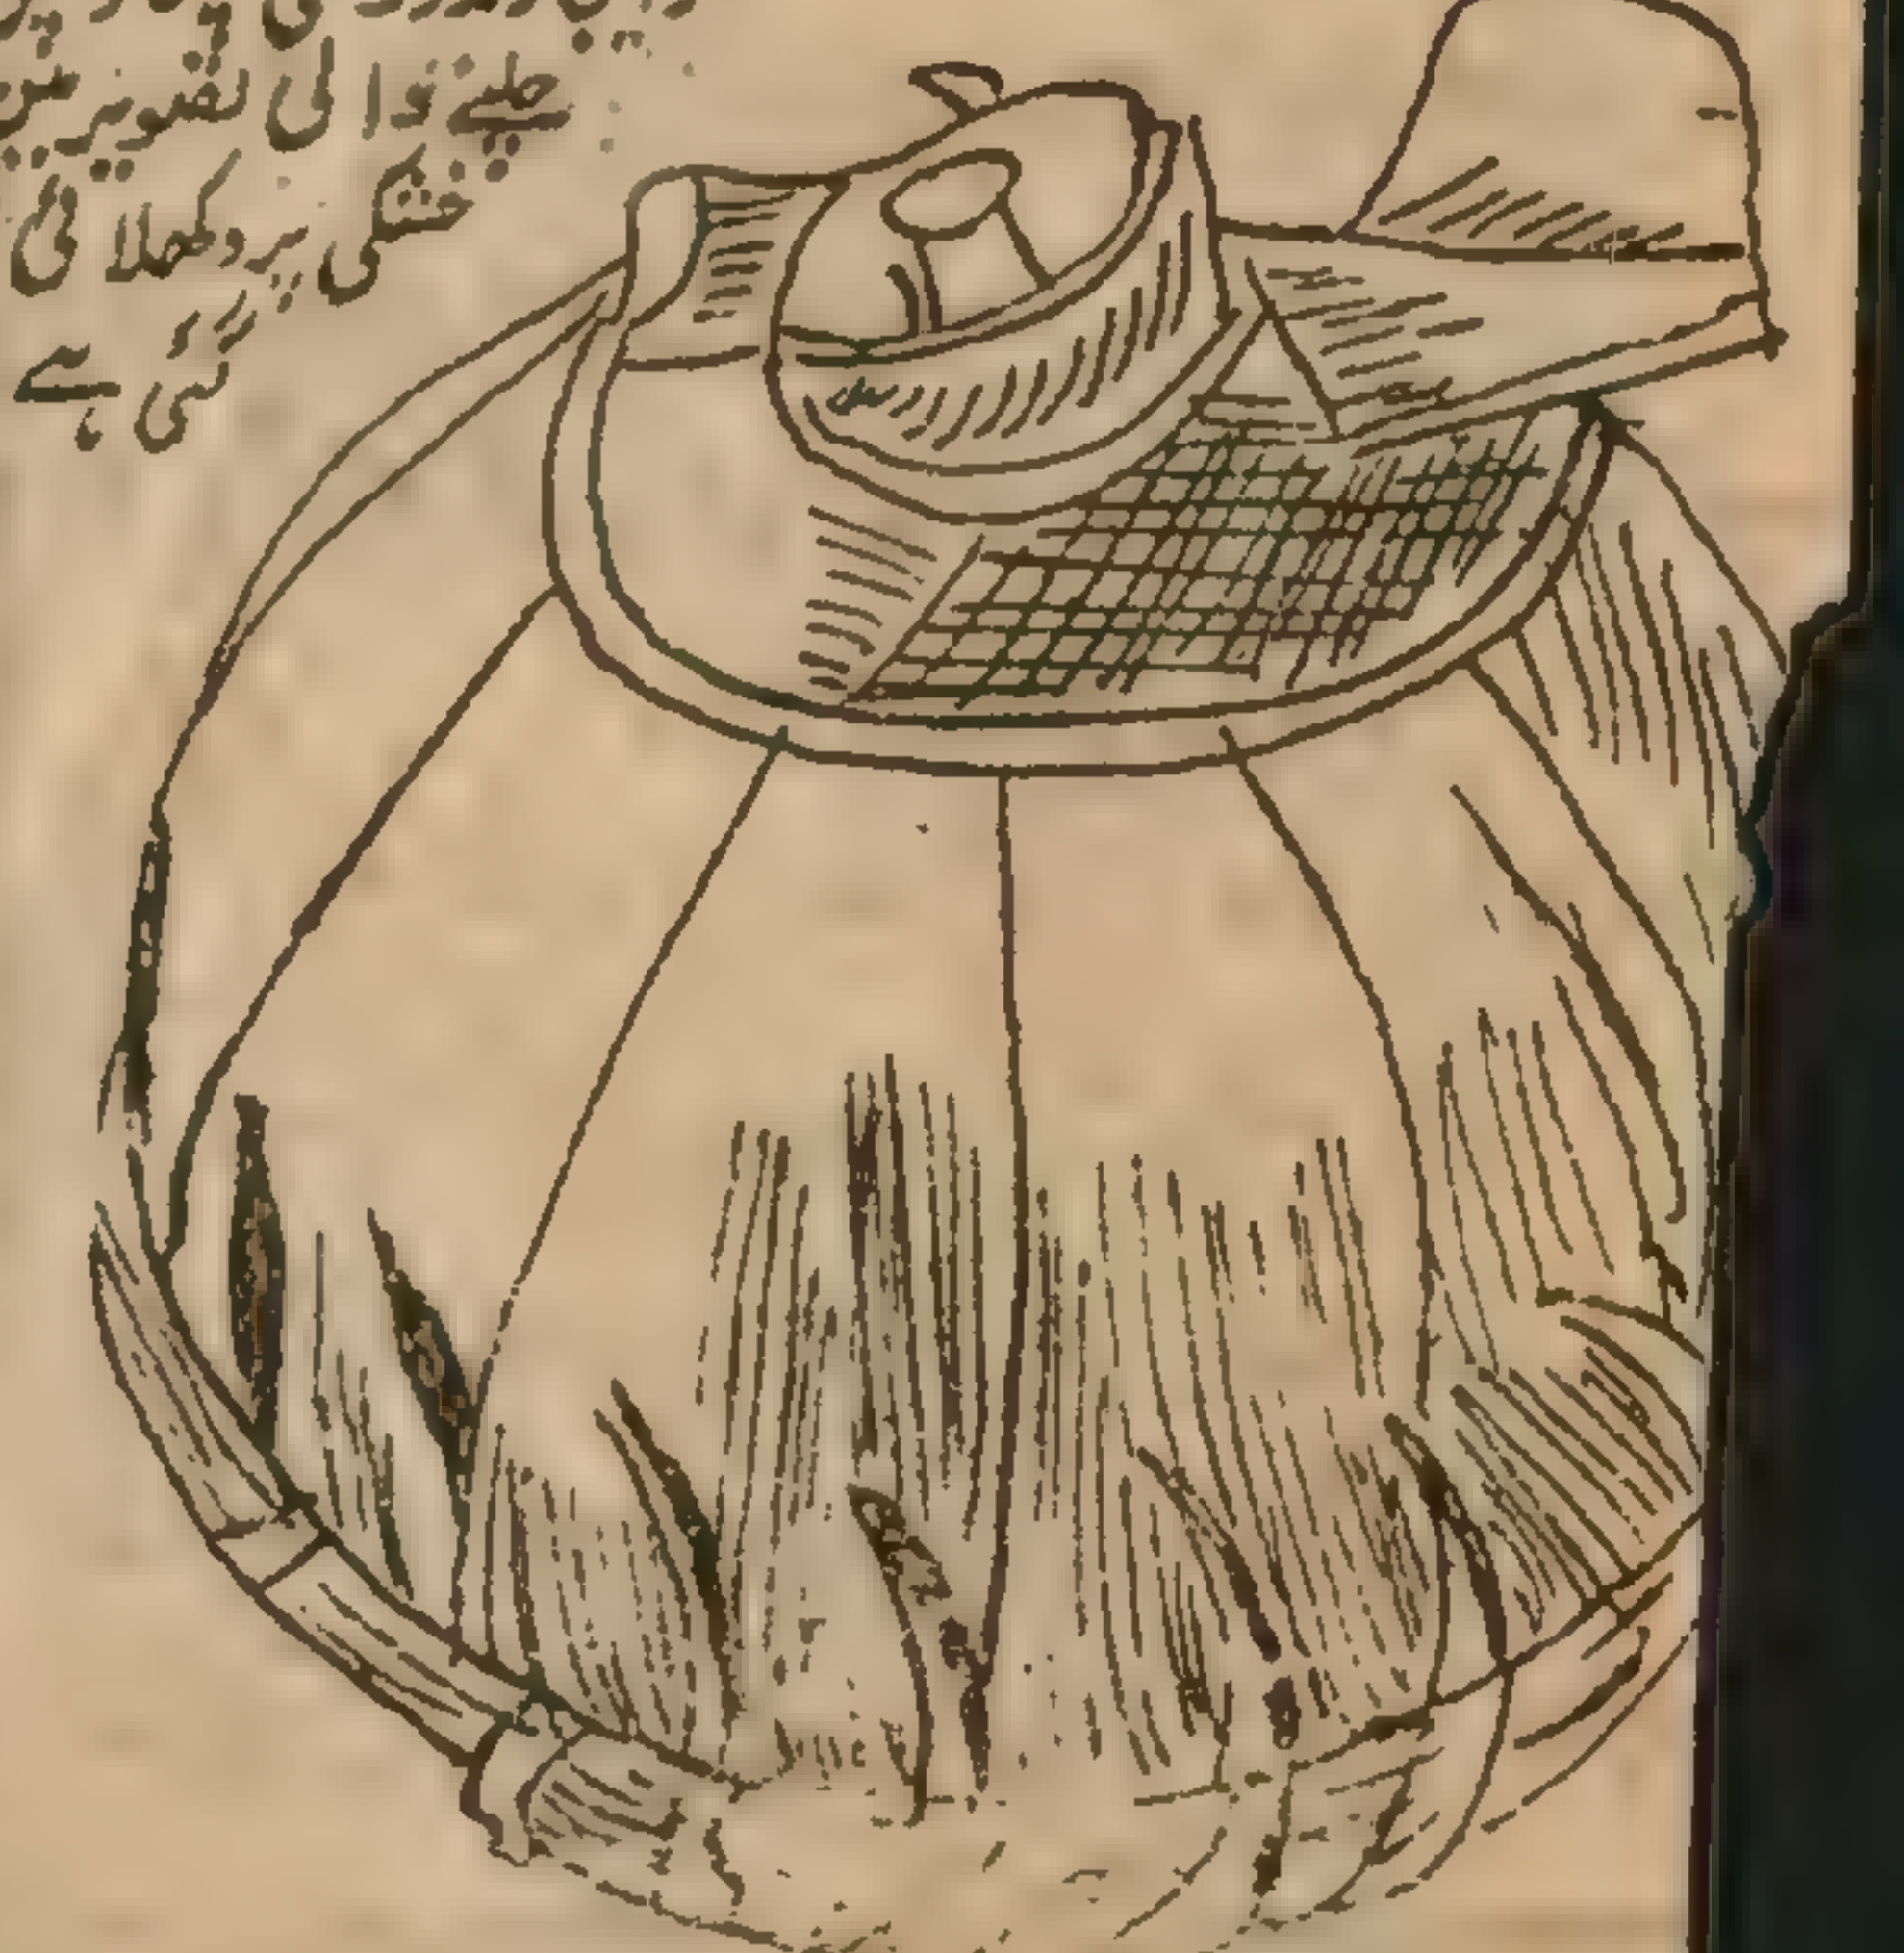 چلنے والی تصویر میں
خشکی پر دکھلائی
گئی ہے